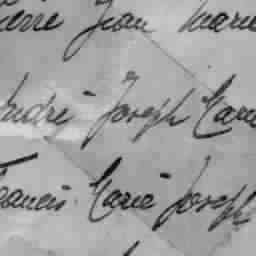 Pierre Jean Marie
André Joseph Marie
Francis Marie Joseph